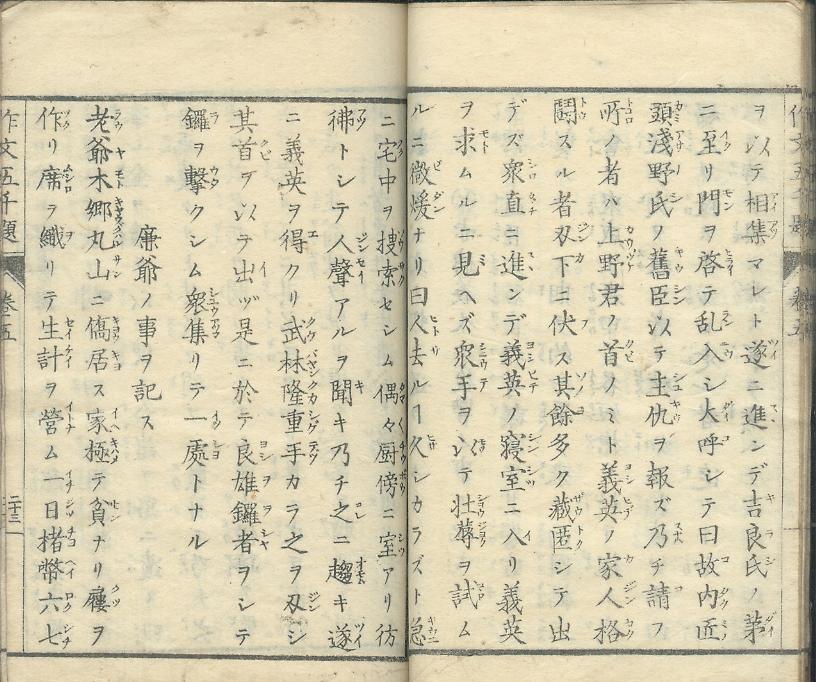 作文五千題 卷五
ヲ以テ相集マレト遂ニ進ンデ吉良氏ノ第
ニ至リ門ヲ啓テ乱入シ大呼シテ曰故内匠
頭淺野氏ノ舊臣以テ主仇ヲ報ズ乃チ請フ
所ノ者ハ上野君ノ首ノミト義英ノ家人格
鬪スル者刄下ニ伏ス其餘多ク藏匿シテ出
デズ衆直ニ進ンデ義英ノ寢室ニ入リ義英
ヲ求ムルニ見ヘズ衆手ヲ以テ牀蓐ヲ試ム
ルニ微煖ナリ曰人去ルヿ久シカラズト急
ニ宅中ヲ捜索セシム偶々厨傍ニ室アリ彷
彿トシテ人聲アルヲ聞キ乃チ之ニ趨キ遂
ニ義英ヲ得タリ武林隆重手カラ之ヲ刄シ
其首ヲ以テ出ヅ是ニ於テ良雄鑼者ヲシテ
鑼ヲ擊クシム衆集リテ一處トナル
廉爺ノ事ヲ記ス
老爺本郷丸山ニ僑居ス家極テ貧ナリ屨ヲ
作リ席ヲ織リテ生計ヲ營ム一日楮幣六七
作文五千題 卷五 二十三